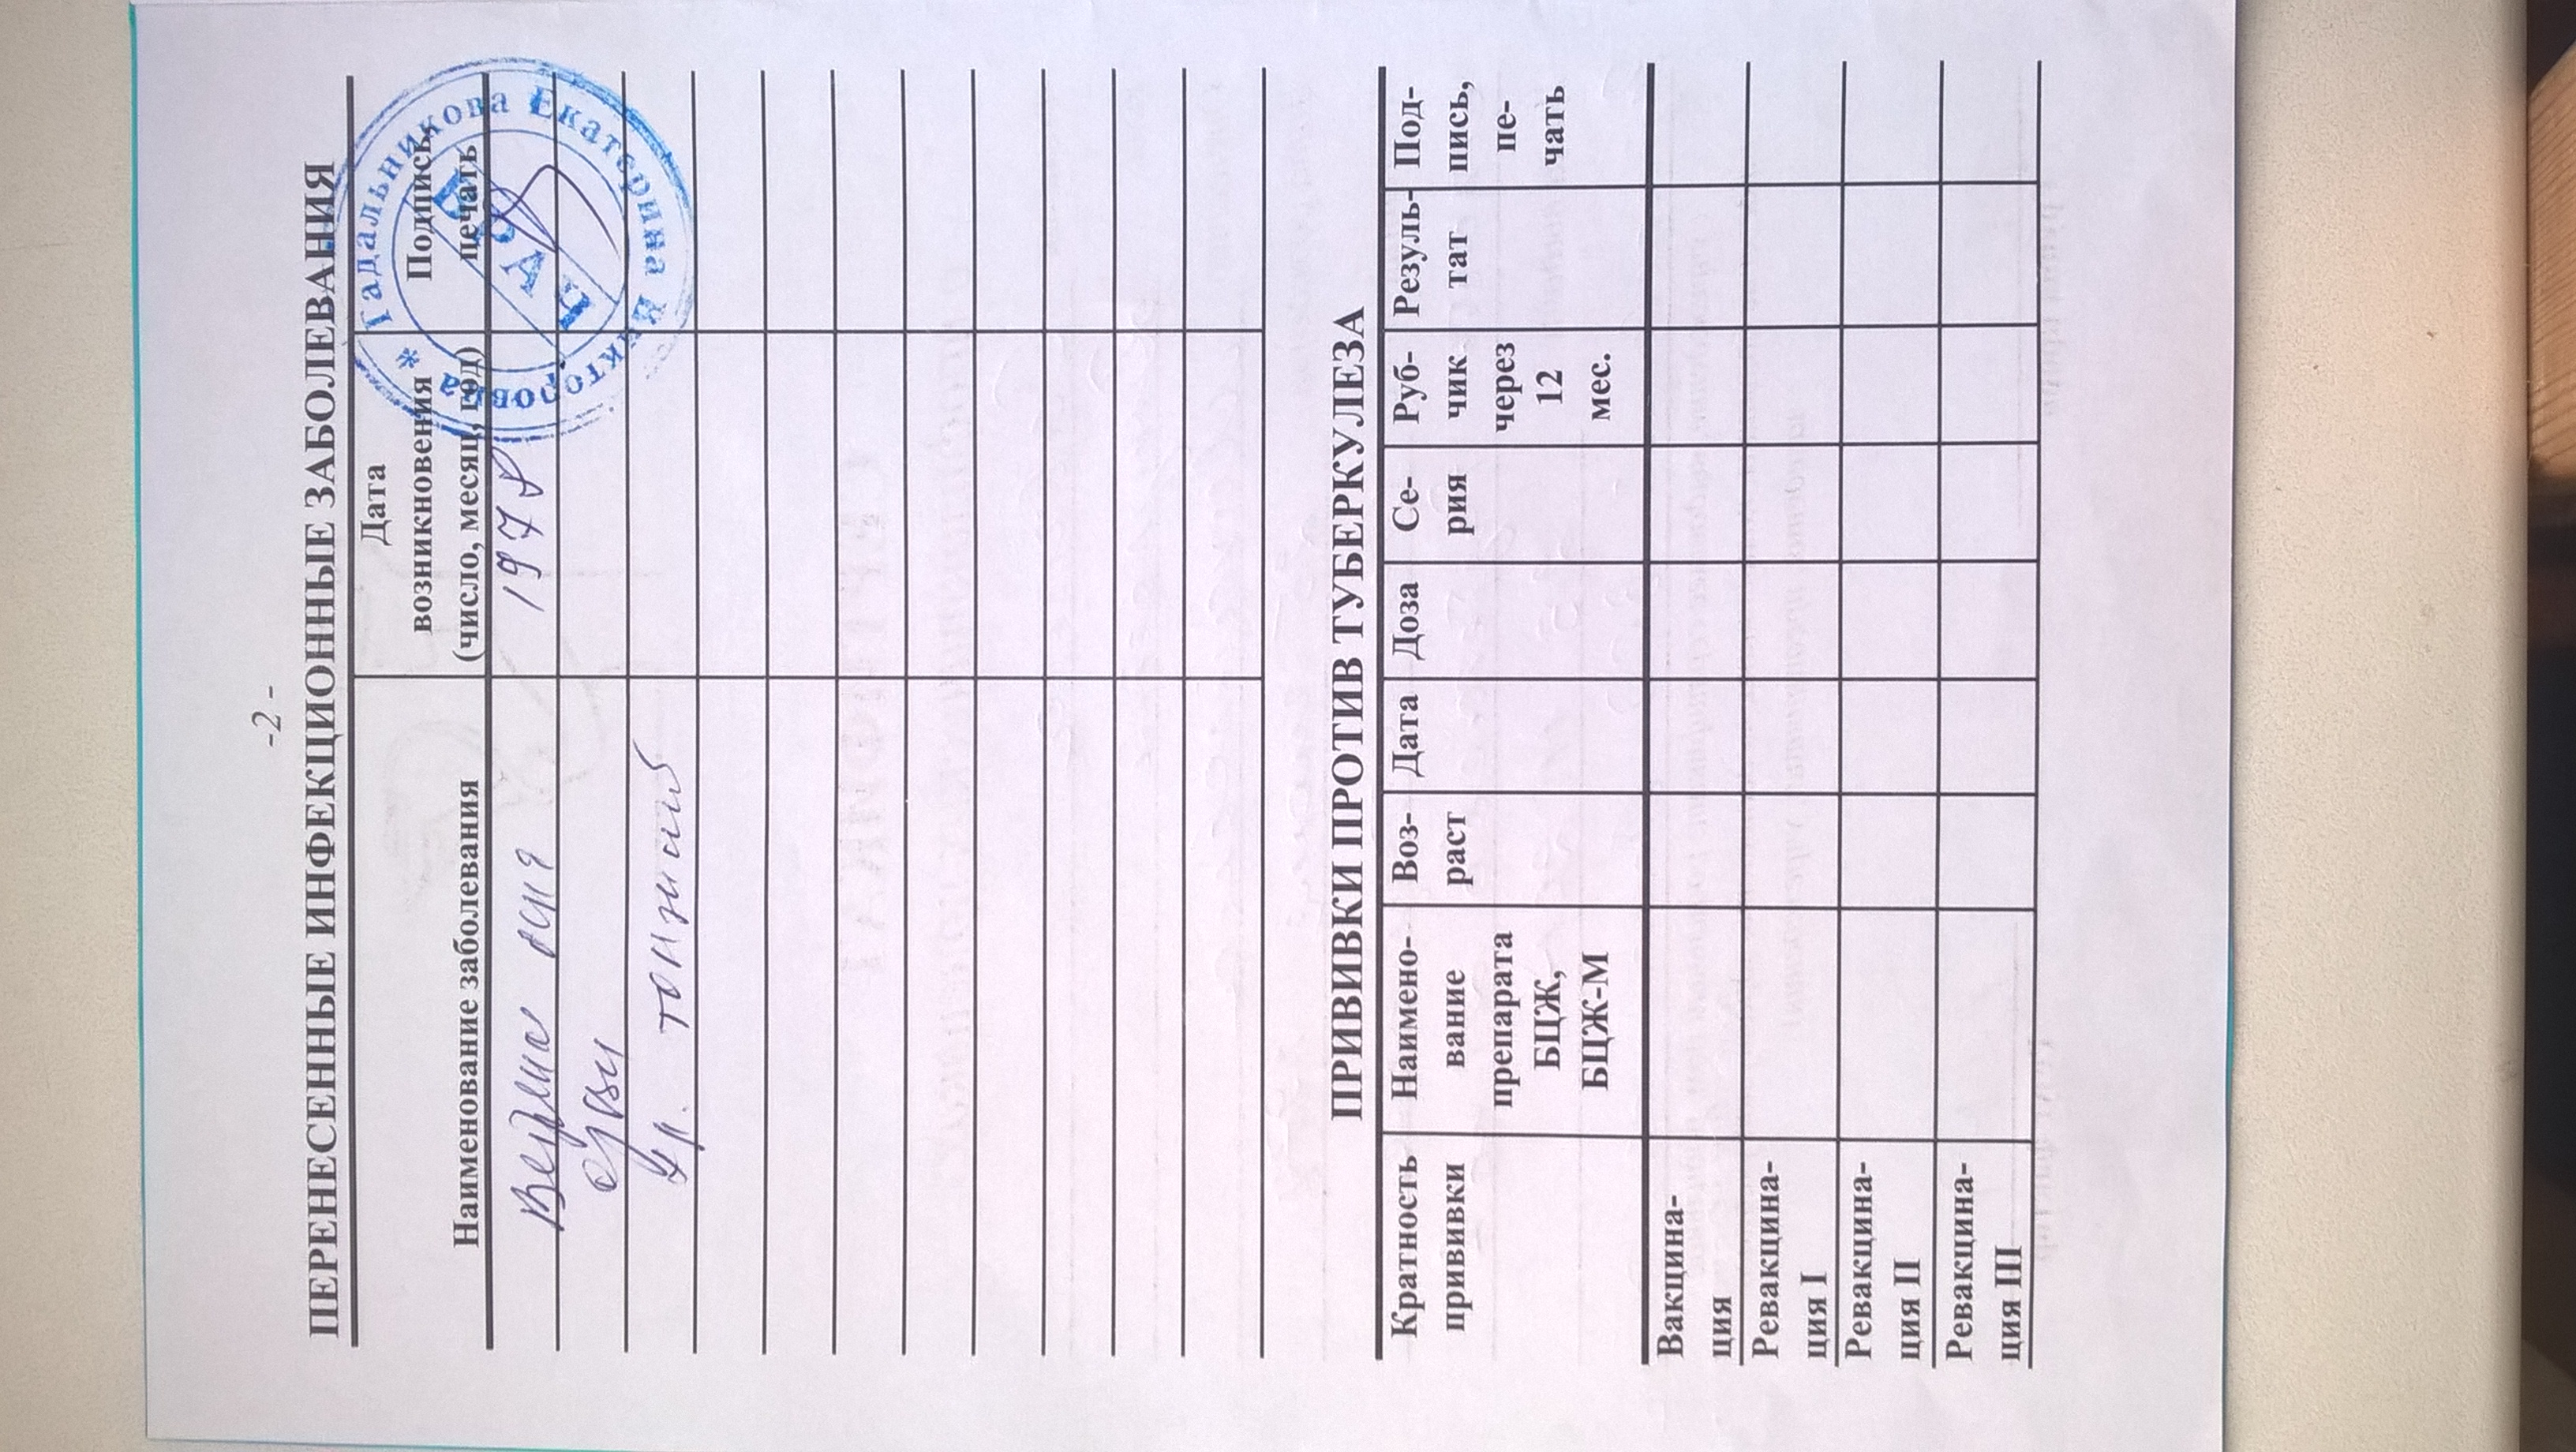 -2-
ПЕРЕНЕСЕННЫЕ ИНФЕКЦИОННЫЕ ЗАБОЛЕВАНИЯ
Наименование заболевания
Дата
возникновения
(число, месяц, год)
Подпись,
печать
1978
* Гадальникова Екатерина Викторовна
ВРАЧ
ОРВИ
хр. тонзиллит
ПРИВИВКИ ПРОТИВ ТУБЕРКУЛЕЗА
Кратность
прививки
Наимено-
вание
препарата
БЦЖ,
БЦЖ-М
Воз-
раст
Дата
Доза
Се-
рия
Руб-
чик
через
12
мес.
Резуль-
тат
Под-
пись,
пе-
чать
Вакцина-
ция
Ревакцина-
ция I
Ревакцина-
ция II
Ревакцина-
ция III